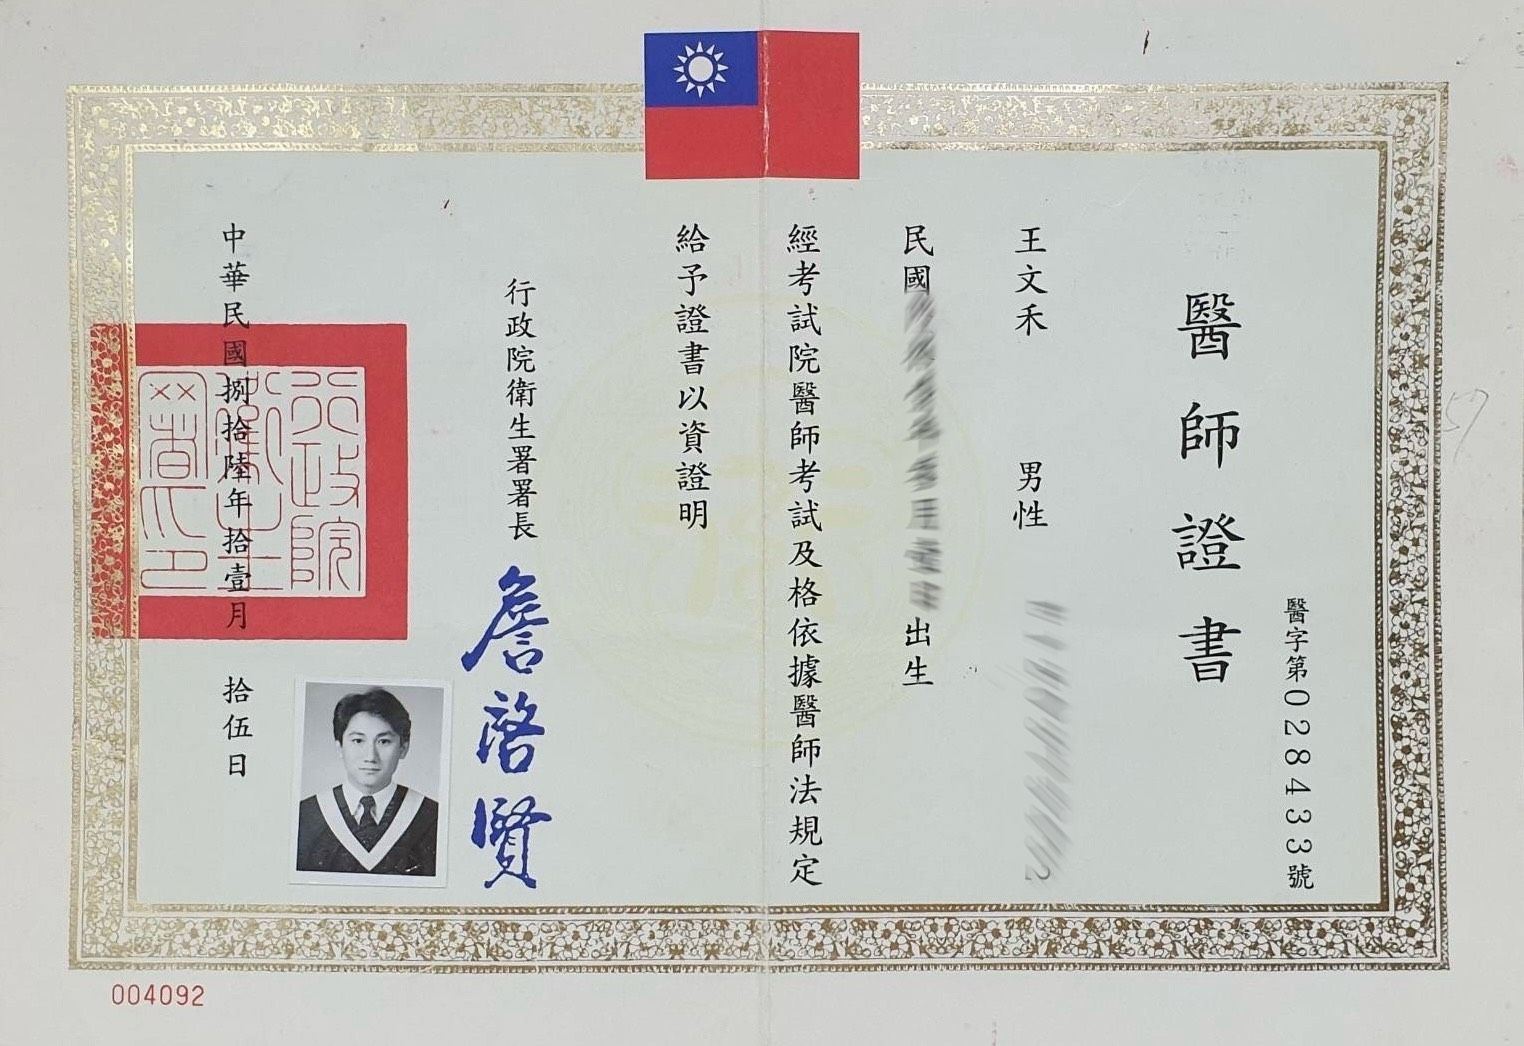 醫師證書
醫字第028433號
王文禾 男性
民國 出生
經考試院醫師考試及格依據醫師法規定
給予證書以資證明
行政院衛生署署長
詹啓賢
行政院衛生署印
中華民國捌拾陸年拾壹月 拾伍日
004092
57